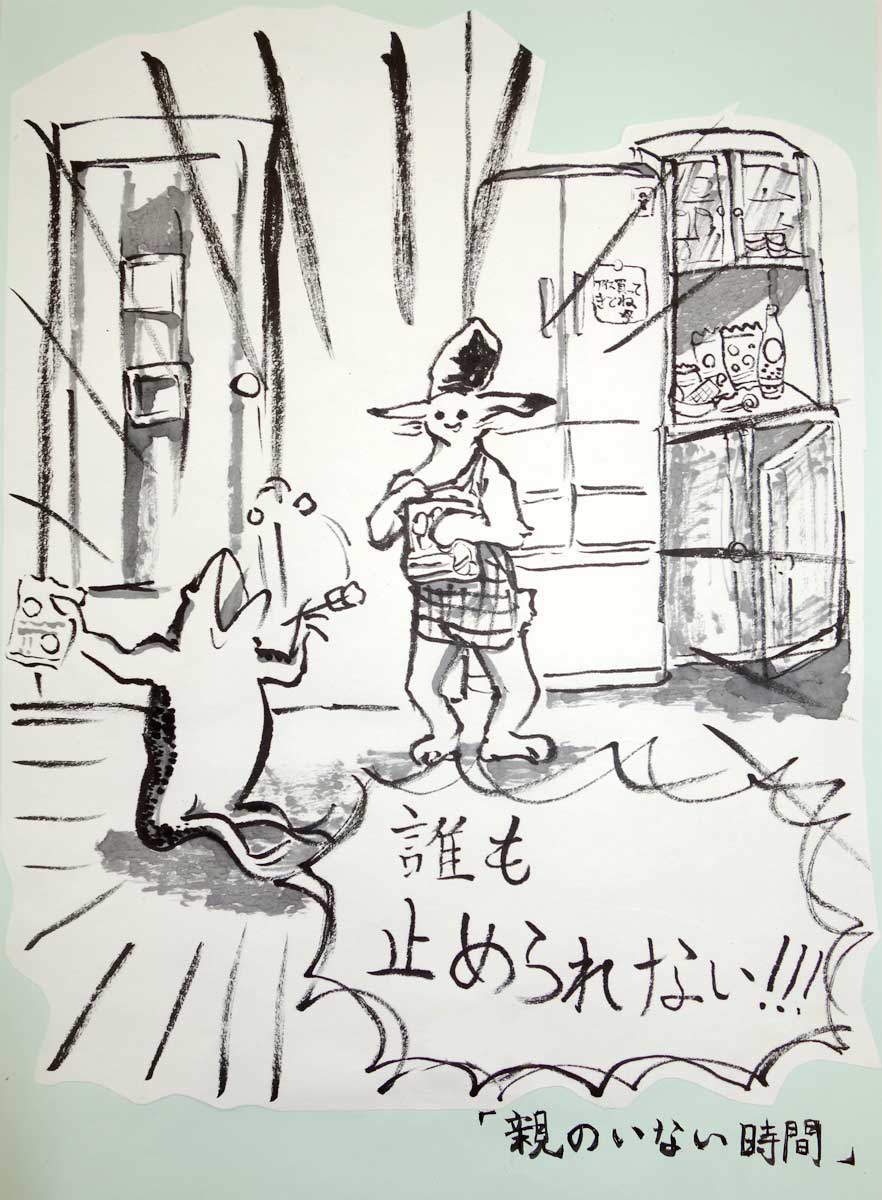 アイス買って
きてね
誰も
止められない!!!
「親のいない時間」